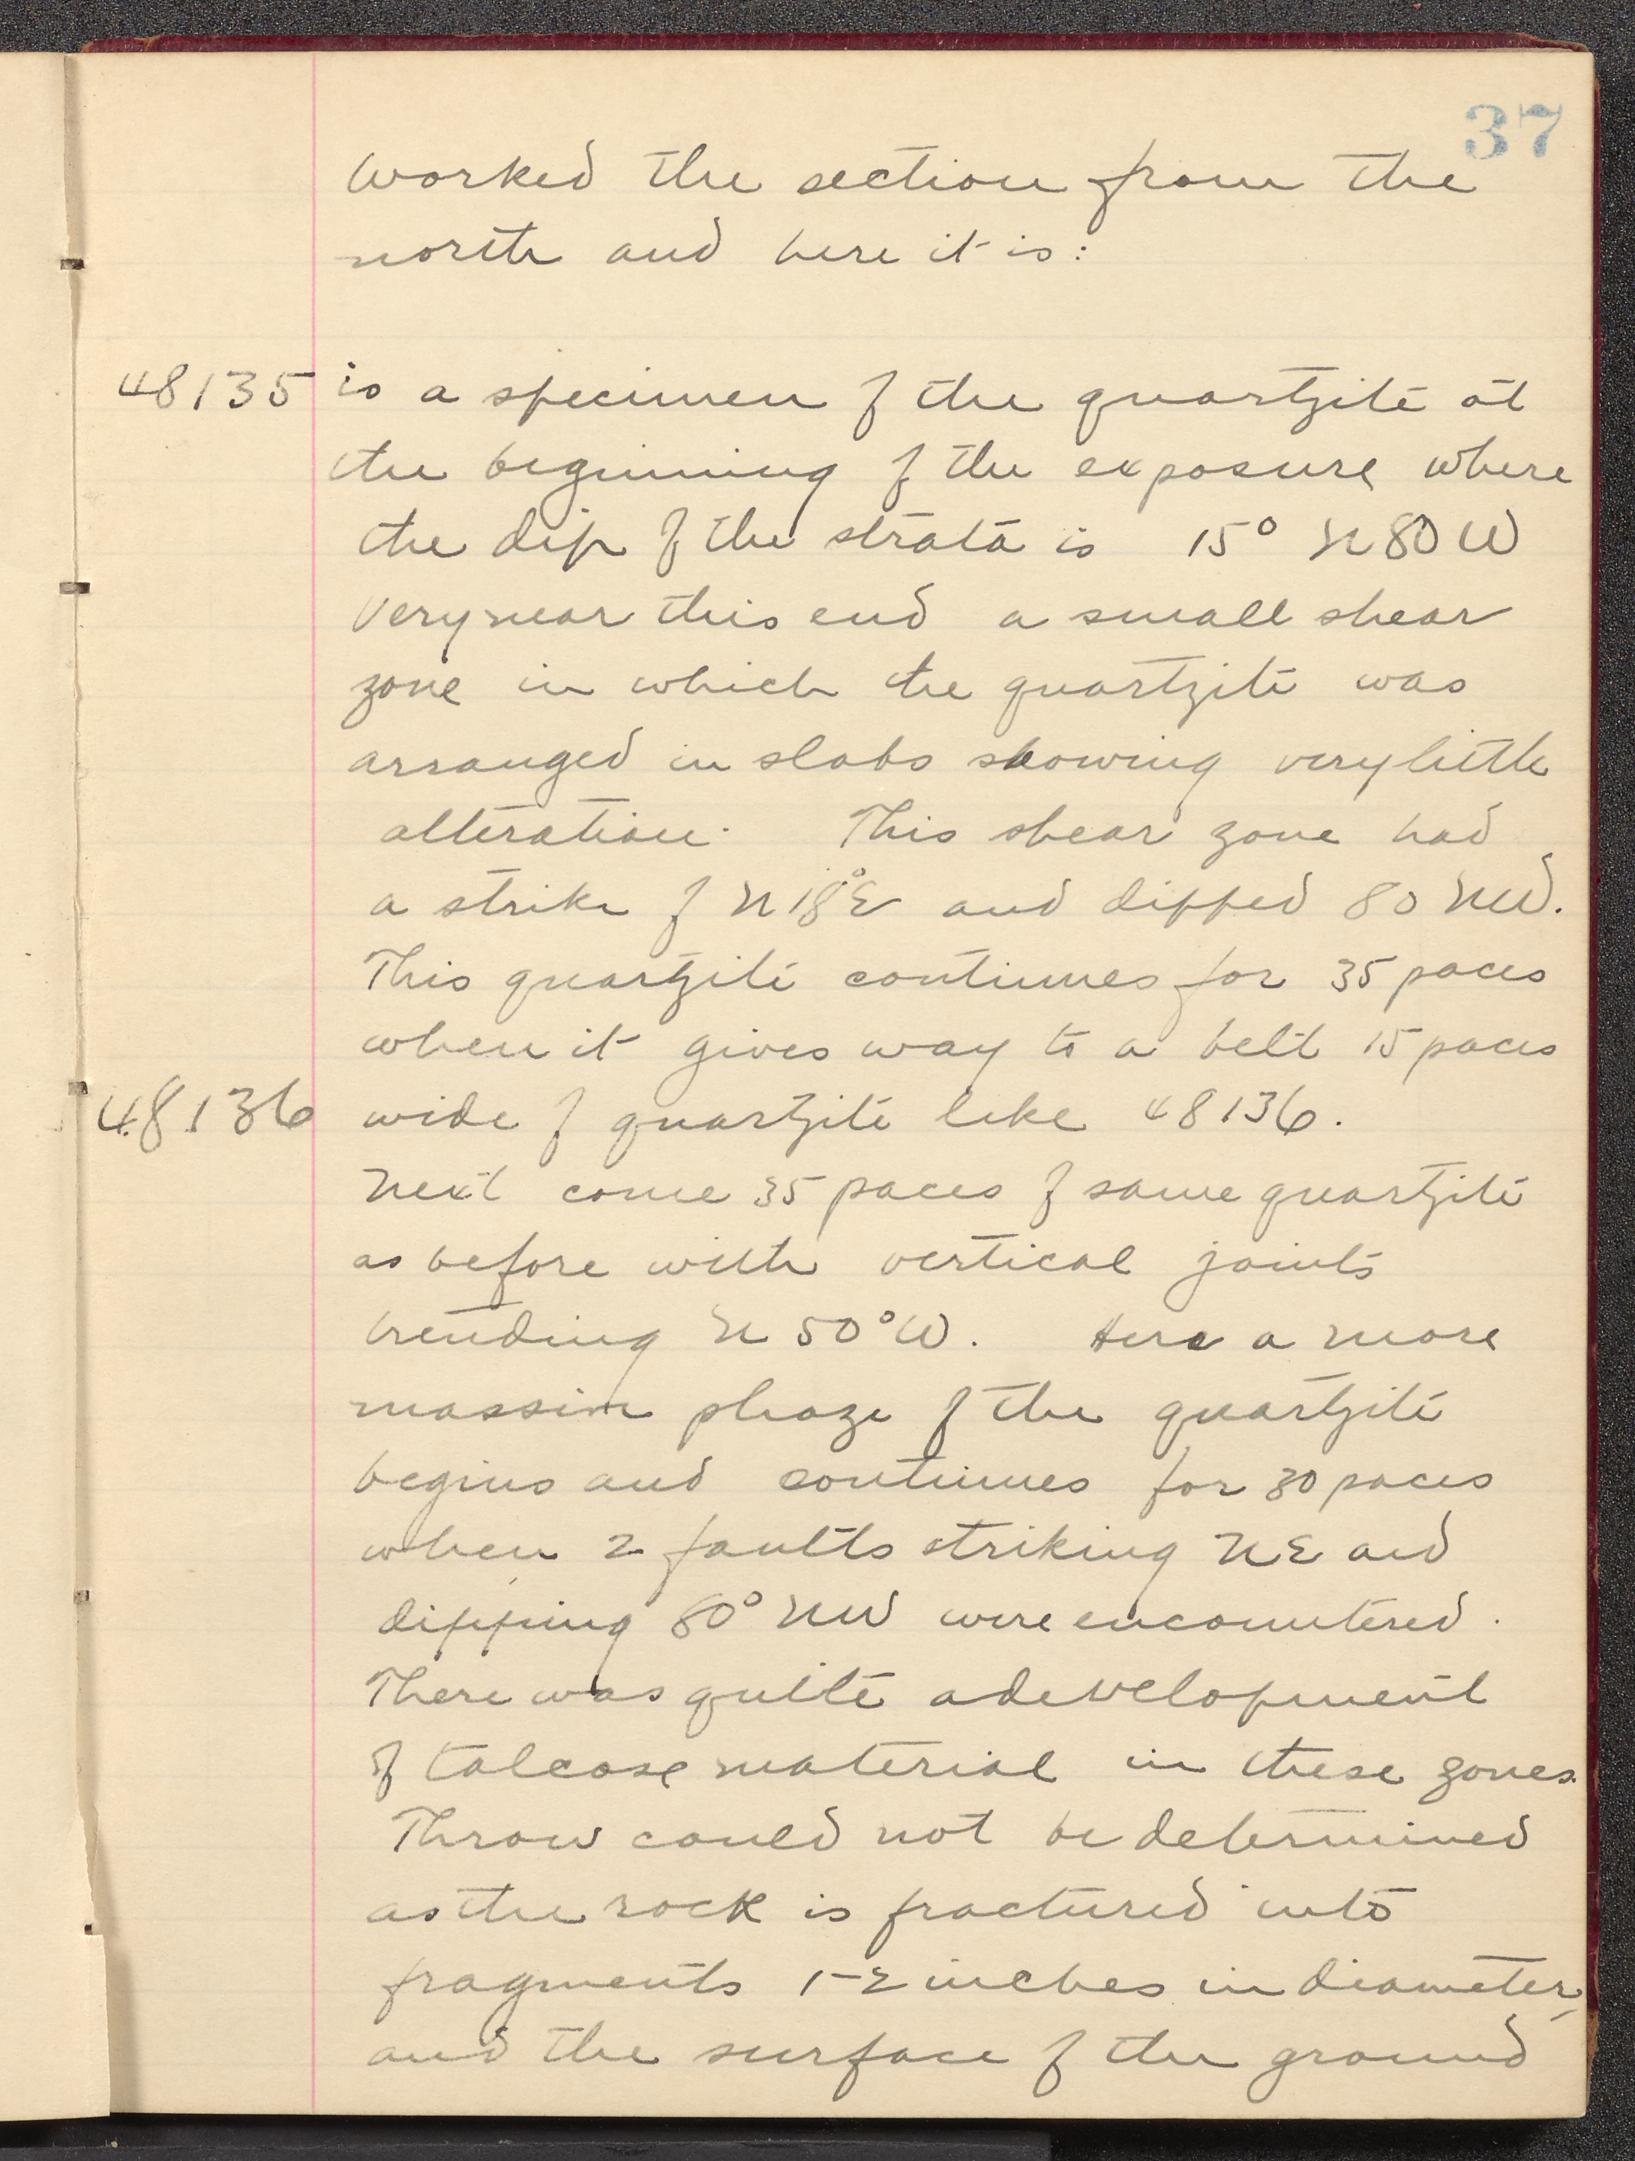 37
worked the section from the
north and here it is:
48135 is a specimen of the quartzite at
the beginning of the exposure where
the dip of the strata is 15° N80W
Very near this end a small shear
zone in which the quartzite was
arranged in slabs showing very little
alteration. This shear zone had
a strike of N18°E and dipped 80 NW.
This quartzite continues for 35 paces
when it gives way to a belt 15 paces
48136 wide of quartzite like 48136.
Next come 35 paces of same quartzite
as before with vertical joints
trending N 50°W. Here a more
massive phaze of the quartzite
begins and continues for 30 paces
when 2 faults striking NE and
dipping 80° NW were encountered.
There was quite a development
of talcose material in these zones.
Throw could not be determined
as the rock is fractured into
fragments 1-2 inches in diameter,
and the surface of the ground